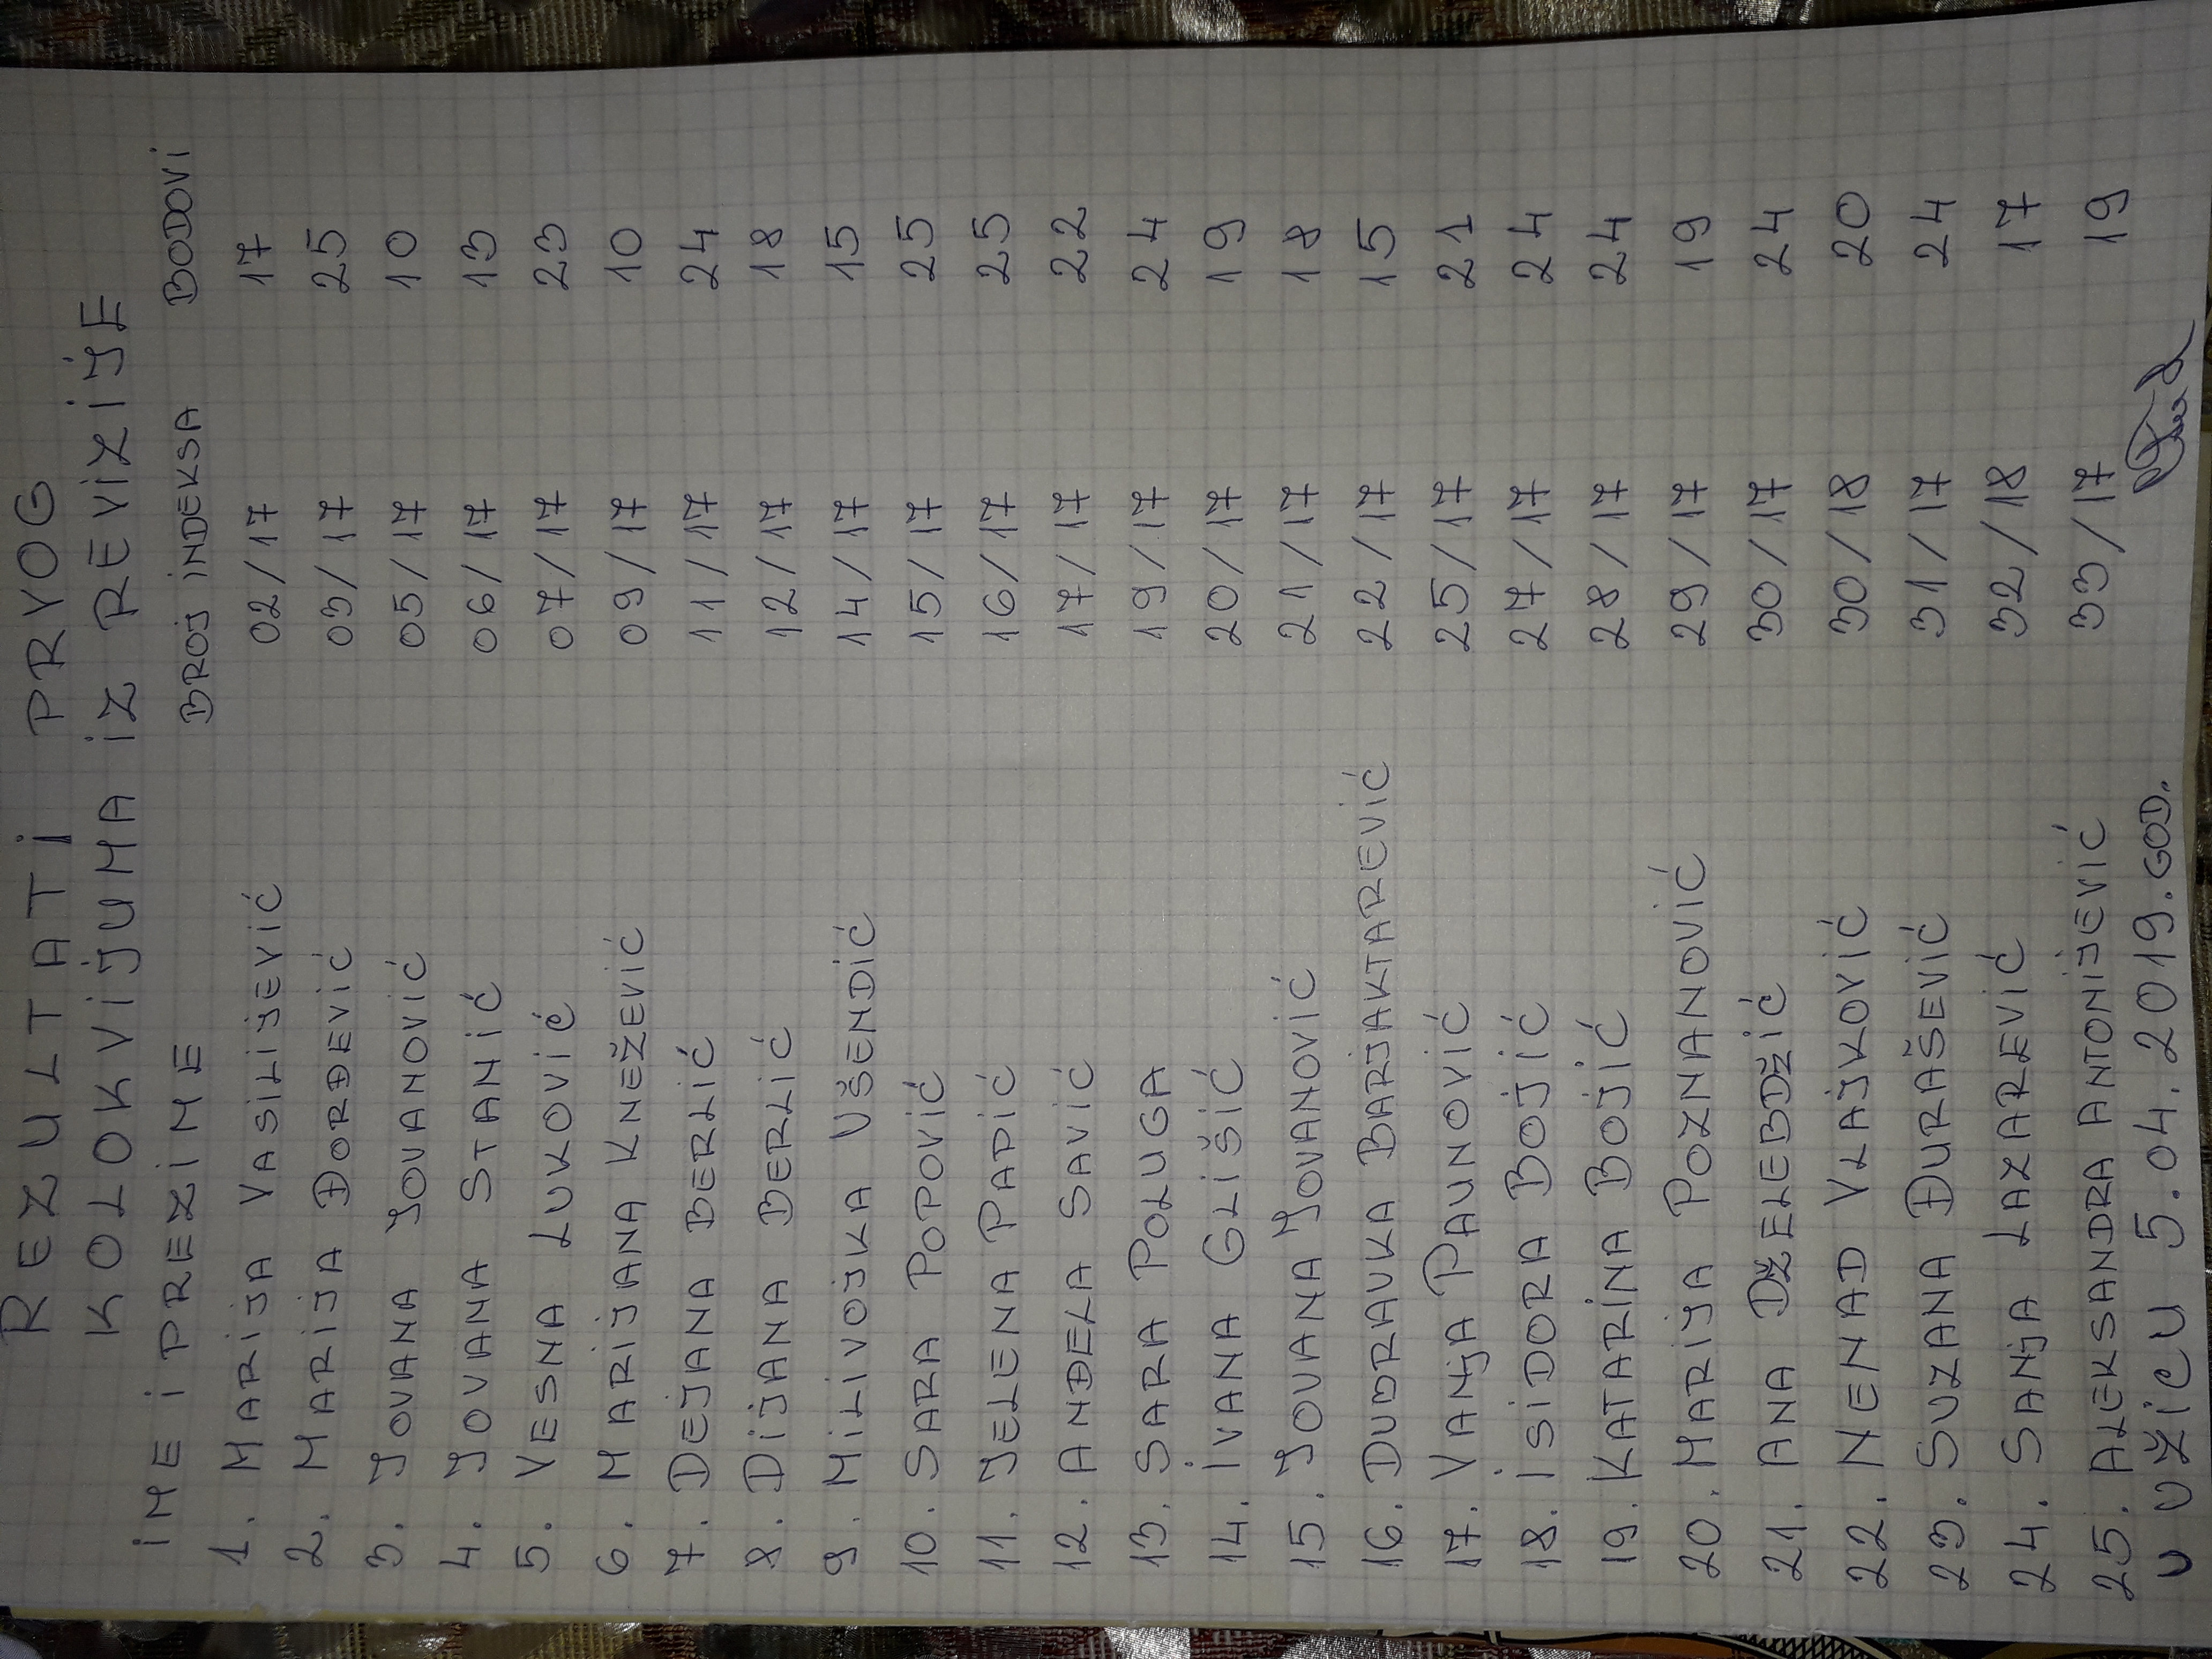 REZULTATI PRVOG
KOLOKVIJUMA IZ REVIZIJE
IME I PREZIME BROJ INDEKSA BODOVI
1. MARIJA VASILIJEVIĆ 02/17 17
2. MARIJA ĐORĐEVIĆ 03/17 25
3. JOVANA JOVANOVIĆ 05/17 10
4. JOVANA STANIĆ 06/17 13
5. VESNA LUKOVIĆ 07/17 23
6. MARIJANA KNEŽEVIĆ 09/17 10
7. DEJANA BERLIĆ 11/17 24
8. DIJANA BERLIĆ 12/17 18
9. MILIVOJKA UŠENDIĆ 14/17 15
10. SARA POPOVIĆ 15/17 25
11. JELENA PAPIĆ 16/17 25
12. ANĐELA SAVIĆ 17/17 22
13. SARA POLUGA 19/17 24
14. IVANA GLIŠIĆ 20/17 19
15. JOVANA JOVANOVIĆ 21/17 18
16. DUBRAVKA BARJAKTAREVIĆ 22/17 15
17. VANJA PAUNOVIĆ 25/17 21
18. ISIDORA BOJIĆ 27/17 24
19. KATARINA BOJIĆ 28/17 24
20. MARIJA POZNANOVIĆ 29/17 19
21. ANA DŽELEBDŽIĆ 30/17 24
22. NENAD VLAJKOVIĆ 30/18 20
23. SUZANA ĐURAŠEVIĆ 31/17 24
24. SANJA LAZAREVIĆ 32/18 17
25. ALEKSANDRA ANTONIJEVIĆ 33/17 19
U UŽICU 5.04.2019.GOD.